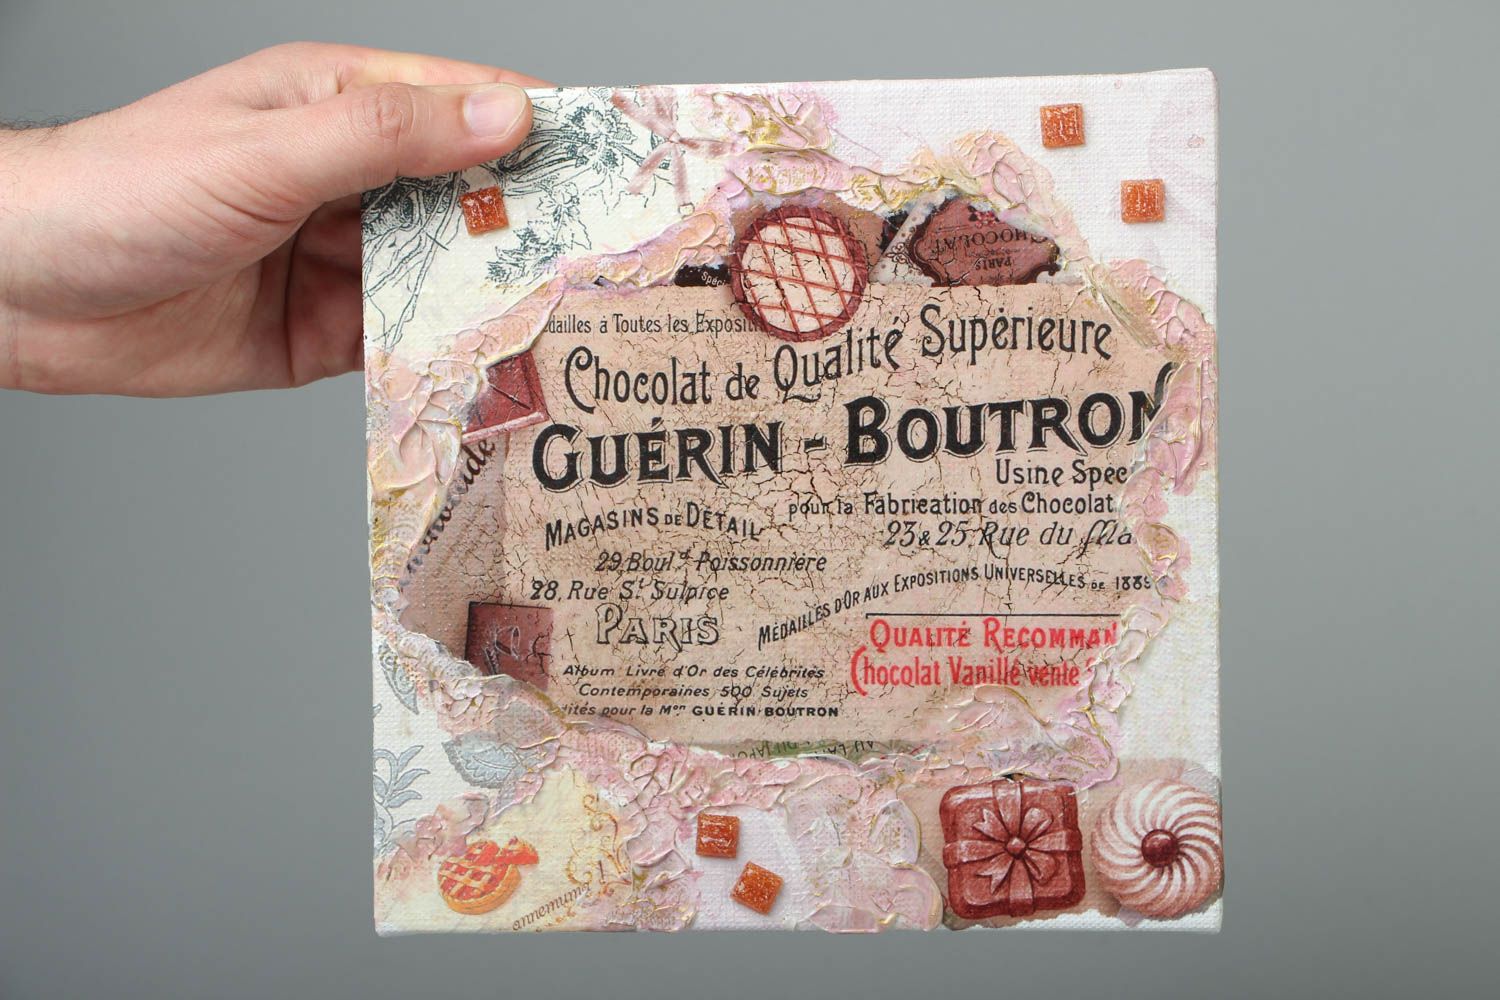 CHOCOLAT
PARIS
Spéci
dailles à Toutes les Expositi
Chocolat de Qualité Supérieure
GUÉRIN-BOUTRON
Usine Spec
pour la Fabrication des Chocolat
MAGASINS DE DÉTAIL
23 & 25, Rue du Ma
29, Boul.d Poissonnière
28, Rue St. Sulpice
PARIS
MÉDAILLES D'OR AUX EXPOSITIONS UNIVERSELLES DE 1889
QUALITÉ RECOMMAN
Chocolat Vanillé vente
Album Livre d'Or des Célébrités
Contemporaines 500 Sujets
dités pour la Mon GUÉRIN-BOUTRON
annemum